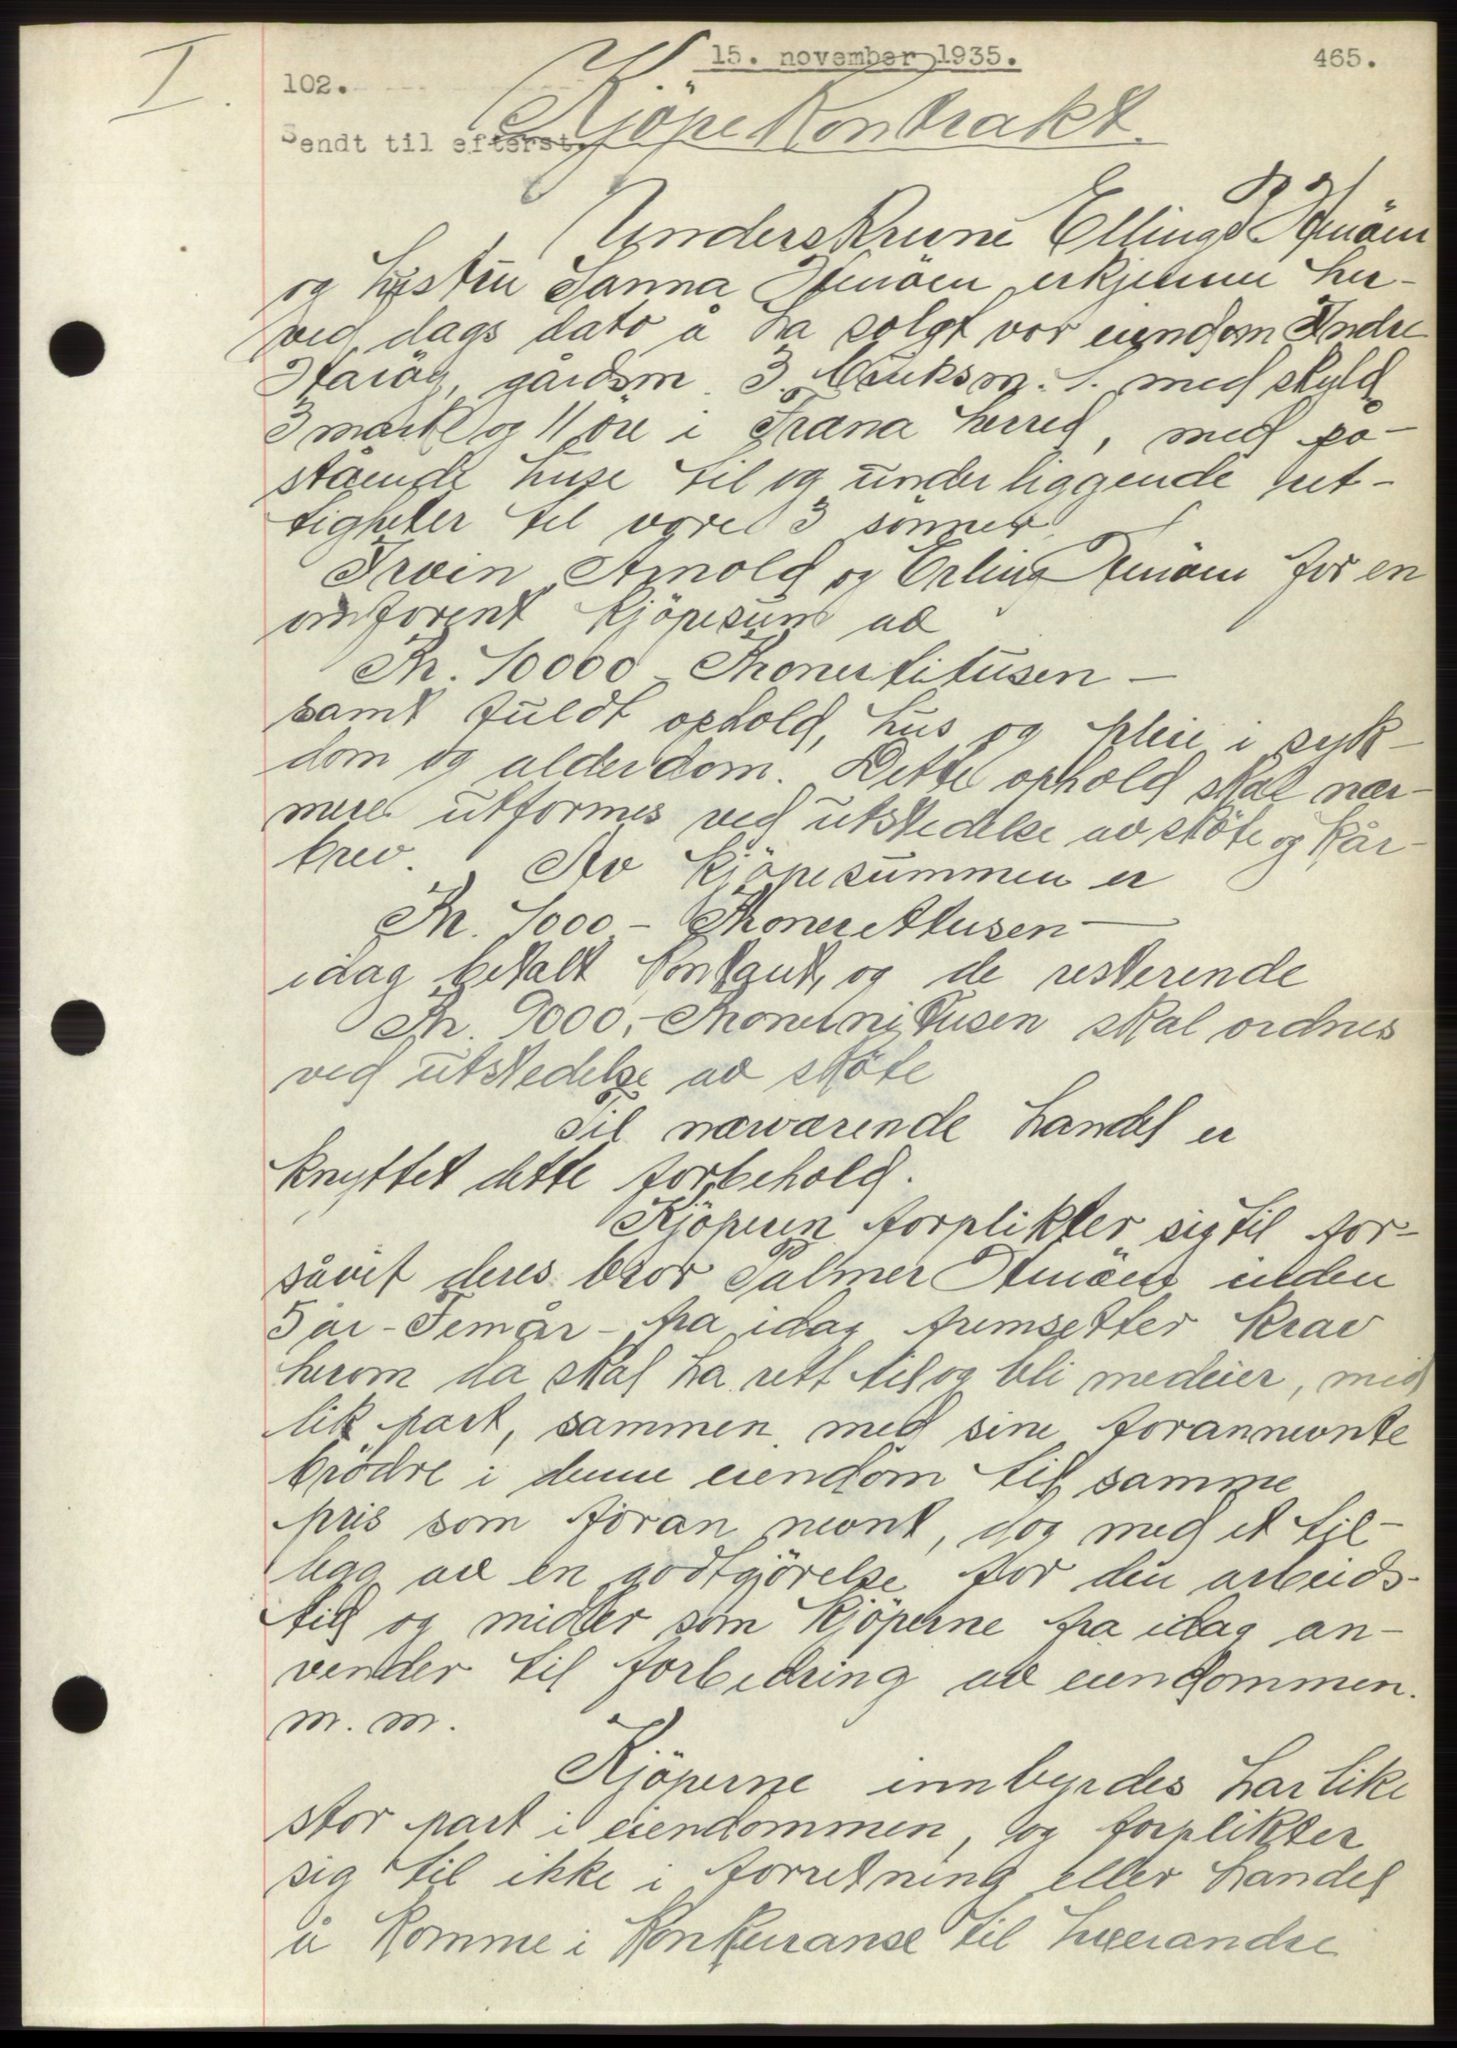 I.
15. november 1935.
465.
102.
Sendt til efterst.
Kjöpekontrakt.
Underskrevne Elling P. Haröen
og hustru Janna Haröen erkjenner her-
ved dags dato å ha solgt vor eiendom Indre
Haröy, gårdsnr. 3. bruksnr. 1. med skyld
3 mark og 11 öre i Fræna herred, med på-
stående huse til og underliggende ret-
tigheter til vore 3 sönner.
Irvin, Arnold og Erling Haröen for en
omforent kjöpesum av
Kr. 10000 - Kroner titusen -
samt fuldt ophold, hus og pleie i syk-
dom og alderdom. Dette ophold skal nær-
mere utformes ved utstedelse av sköte og kår-
brev. Av kjöpesummen er
Kr. 1000 - Kroner ettusen -
idag betalt kontant, og de resterende
Kr. 9000,- Kroner nitusen skal ordnes
ved utstedelse av sköte
Til nærværende handel er
knyttet dette forbehold.
Kjöperen forplikter sig til for-
såvit deres bror Palmer Haröen inden
5 år - Femår - fra idag fremsetter krav
herom da skal ha rett til og bli medeier, med
lik part, sammen med sine forannevnte
brödre i denne eiendom til samme
pris som foran nevnt, dog med et til-
legg av en godtgjörelse for den arbeids-
tid og midler som kjöperne fra idag an-
vender til forbedring av eiendommen.
m. m.
Kjöperne innbyrdes har like
stor part i eiendommen, og forplikter
sig til ikke i forretning eller handel
å komme i konkurranse til hverandre